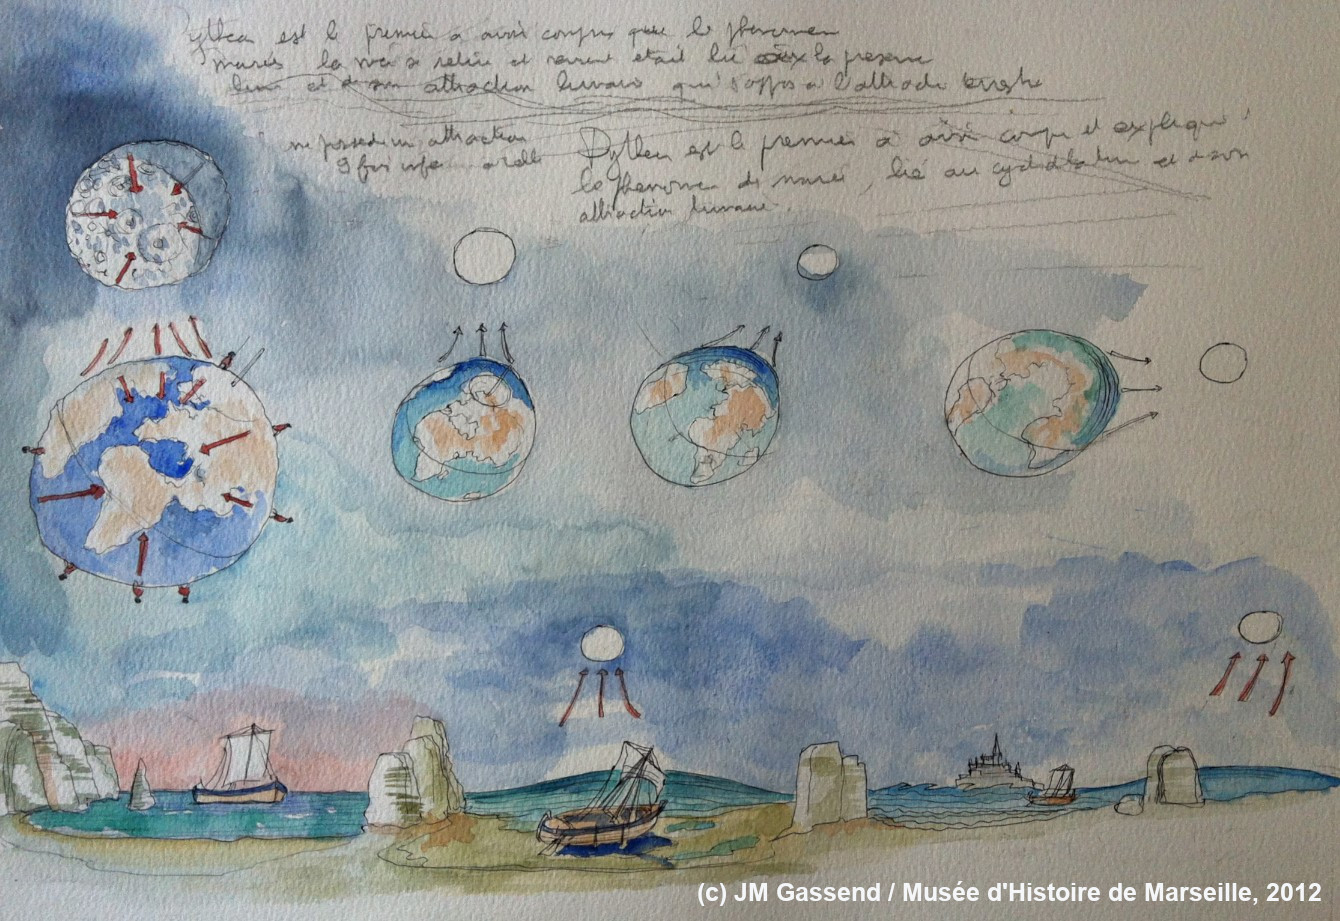 Pytheas est le premier à avoir compris que le phenomen
marées la mer se retire et revient etait lié à la presence
lune et de son attraction lunaire qui s'oppose à l'attraction terrestre
ne possede un attraction
9 fois infe a celle
Pytheas est le premier à avoir compris et expliqué
le phenomene de marées, lié au cycle de la lune et de son
attraction lunaire.
(c) JM Gassend / Musée d'Histoire de Marseille, 2012